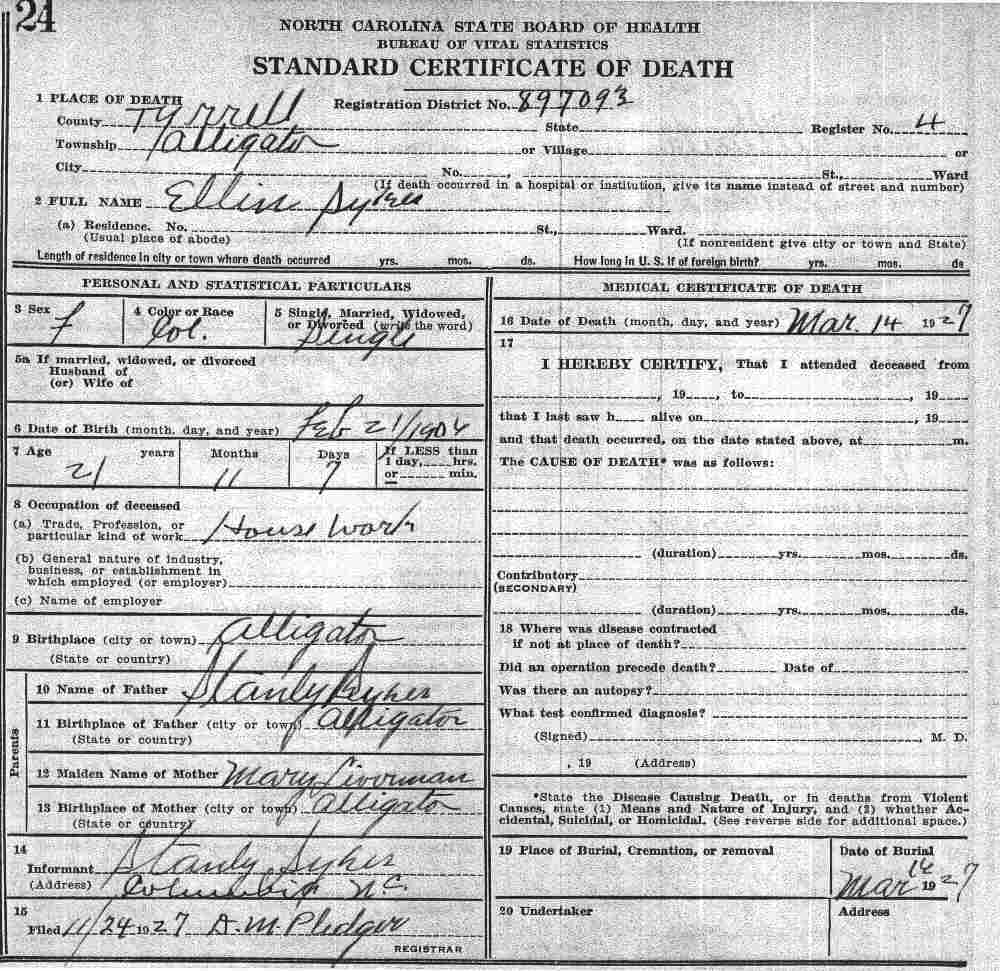 24
NORTH CAROLINA STATE BOARD OF HEALTH
BUREAU OF VITAL STATISTICS
STANDARD CERTIFICATE OF DEATH
1 PLACE OF DEATH
Registration District No. 897093
County Tyrrell State Register No. 4
Township Alligator or Village or
City No. , St., Ward
(If death occurred in a hospital or institution, give its name instead of street and number)
2 FULL NAME Ellin Sykes
(a) Residence. No. St., Ward.
(Usual place of abode) (If nonresident give city or town and State)
Length of residence in city or town where death occurred yrs. mos. ds. How long in U. S. if of foreign birth? yrs. mos. ds
PERSONAL AND STATISTICAL PARTICULARS
3 Sex F
4 Color or Race Col.
5 Single, Married, Widowed, or Divorced (write the word) Single
5a If married, widowed, or divorced
Husband of
(or) Wife of
6 Date of Birth (month, day, and year) Feb 21/1904
7 Age 21 years 11 Months 7 Days If LESS than 1 day, hrs. or min.
8 Occupation of deceased
(a) Trade, Profession, or
particular kind of work House Work
(b) General nature of industry,
business, or establishment in
which employed (or employer)
(c) Name of employer
9 Birthplace (city or town) Alligator
(State or country)
Parents
10 Name of Father Stanly Sykes
11 Birthplace of Father (city or town) Alligator
(State or country)
12 Maiden Name of Mother Mary
13 Birthplace of Mother (city or town) Alligator
(State or country)
14
Informant Stanly Sykes
(Address) Columbia NC.
15
Filed 11/24 1927 A. M. Pledger
REGISTRAR
MEDICAL CERTIFICATE OF DEATH
16 Date of Death (month, day, and year) Mar. 14 1927
17
I HEREBY CERTIFY, That I attended deceased from
, 19 , to , 19
that I last saw h alive on , 19
and that death occurred, on the date stated above, at m.
The CAUSE OF DEATH* was as follows:
(duration) yrs. mos. ds.
Contributory
(SECONDARY)
(duration) yrs. mos. ds.
18 Where was disease contracted
if not at place of death?
Did an operation precede death? Date of
Was there an autopsy?
What test confirmed diagnosis?
(Signed) , M. D.
, 19 (Address)
*State the Disease Causing Death, or in deaths from Violent
Causes, state (1) Means and Nature of Injury, and (2) whether Ac-
cidental, Suicidal, or Homicidal. (See reverse side for additional space.)
19 Place of Burial, Cremation, or removal
Date of Burial
Mar 16 1927
20 Undertaker
Address